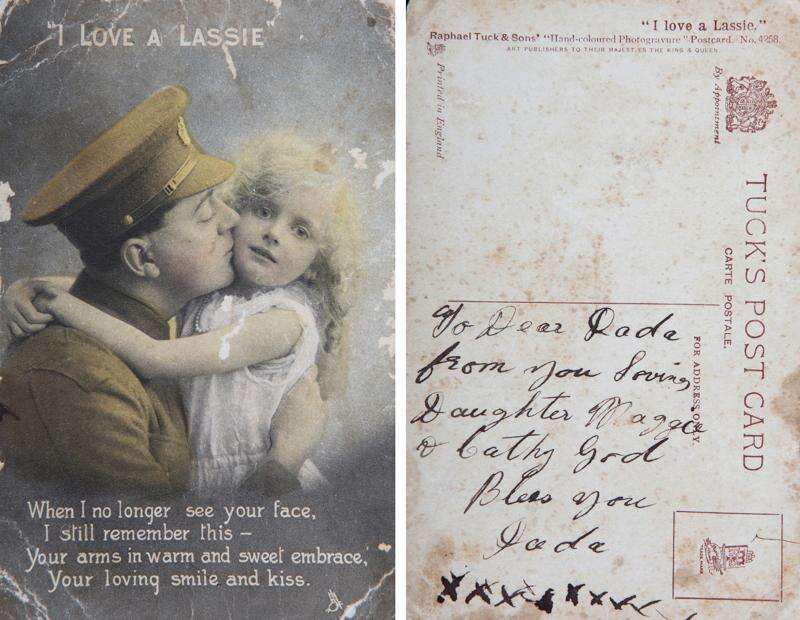 "I LOVE A LASSIE"
When I no longer see your face,
I still remember this –
Your arms in warm and sweet embrace,
Your loving smile and kiss.
"I love a Lassie."
Raphael Tuck & Sons' "Hand-coloured Photogravure" Postcard. No. 4258.
ART PUBLISHERS TO THEIR MAJESTIES THE KING & QUEEN.
Printed in England
By Appointment
TUCK'S POST CARD
CARTE POSTALE.
FOR ADDRESS ONLY.
To Dear Dada
from you loving
Daughter Maggie
& Cathy God
Bless you
Dada
xxxxxxxx